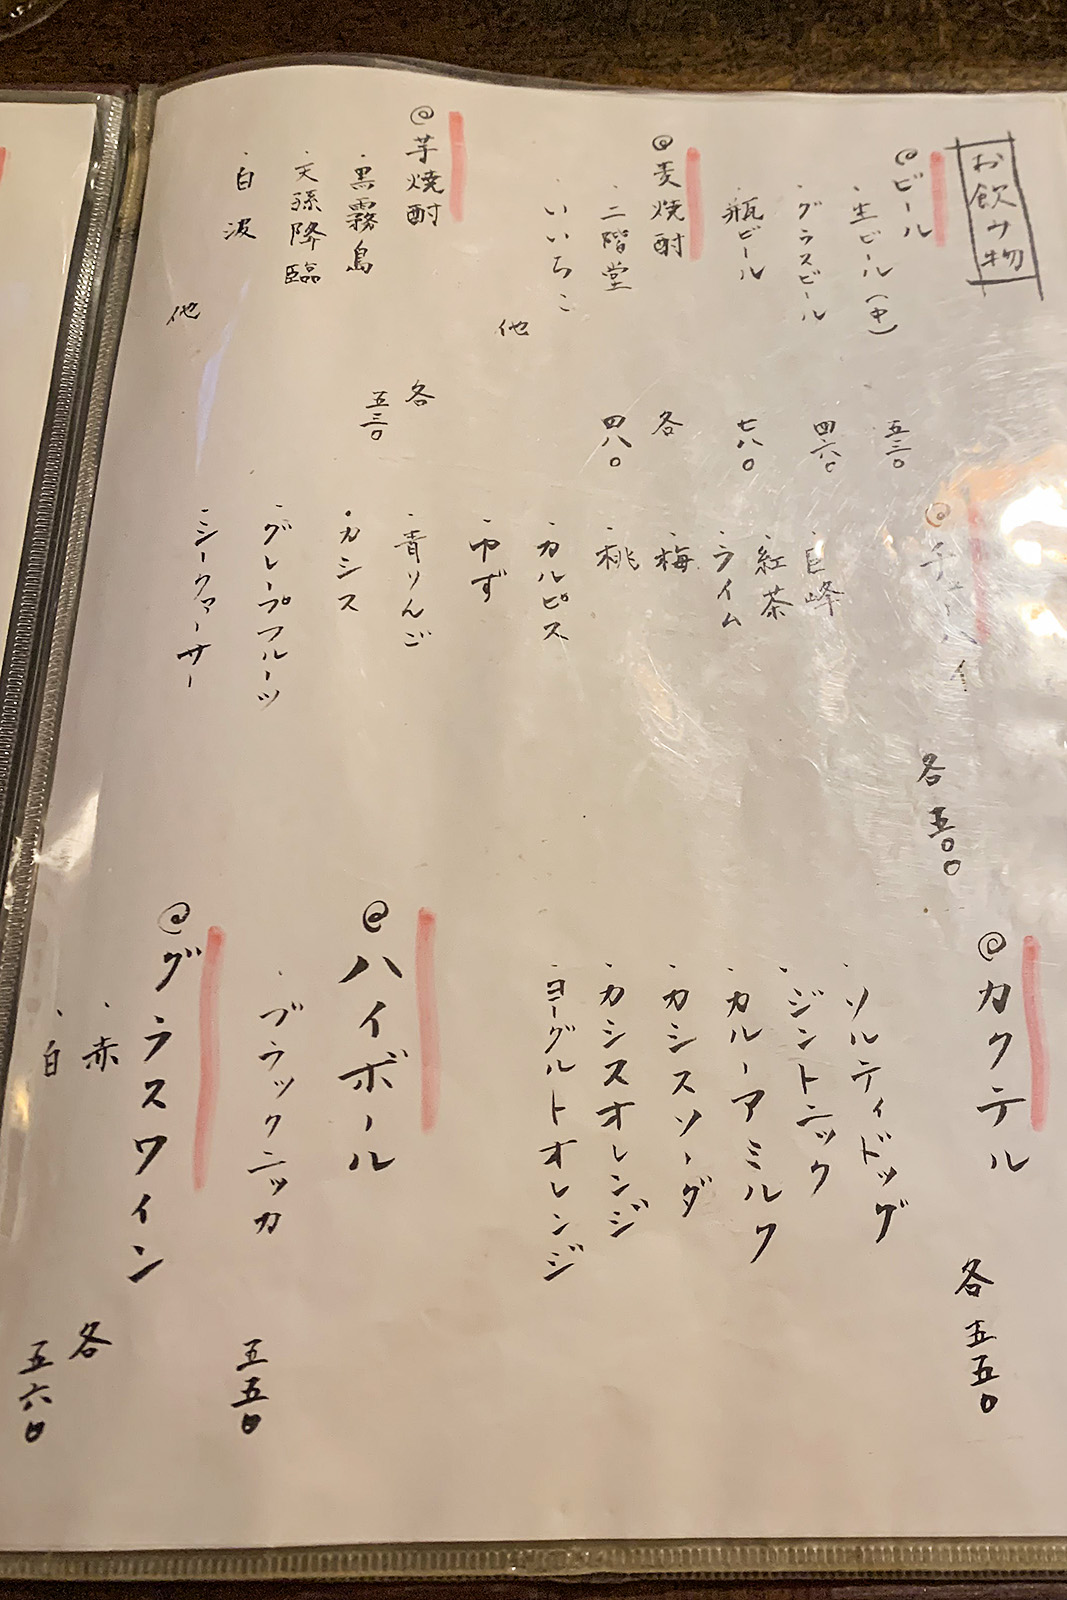 お飲み物
@ビール
・生ビール(中) 五三〇
・グラスビール 四六〇
・瓶ビール 七八〇
@麦焼酎 各
・二階堂 四八〇
・いいちこ
他
@芋焼酎 各
・黒霧島 五三〇
・天孫降臨
・白波
他
@チューハイ 各五〇〇
・巨峰
・紅茶
・ライム
・梅
・桃
・カルピス
・ゆず
・青りんご
・カシス
・グレープフルーツ
・シークァーサー
@カクテル 各五五〇
・ソルティドッグ
・ジントニック
・カルーアミルク
・カシスソーダ
・カシスオレンジ
・ヨーグルトオレンジ
@ハイボール
・ブラックニッカ 五五〇
@グラスワイン
・赤 各
・白 五六〇